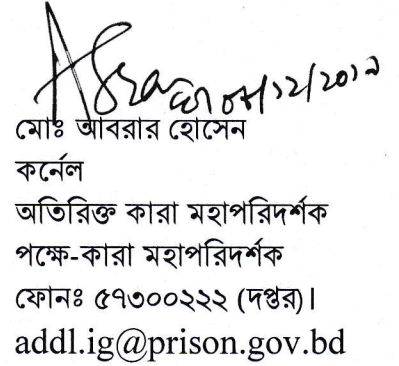 ০৮/১২/২০১৯
মোঃ আবরার হোসেন
কর্নেল
অতিরিক্ত কারা মহাপরিদর্শক
পক্ষে-কারা মহাপরিদর্শক
ফোনঃ ৫৭৩০০২২২ (দপ্তর)।
addl.ig@prison.gov.bd